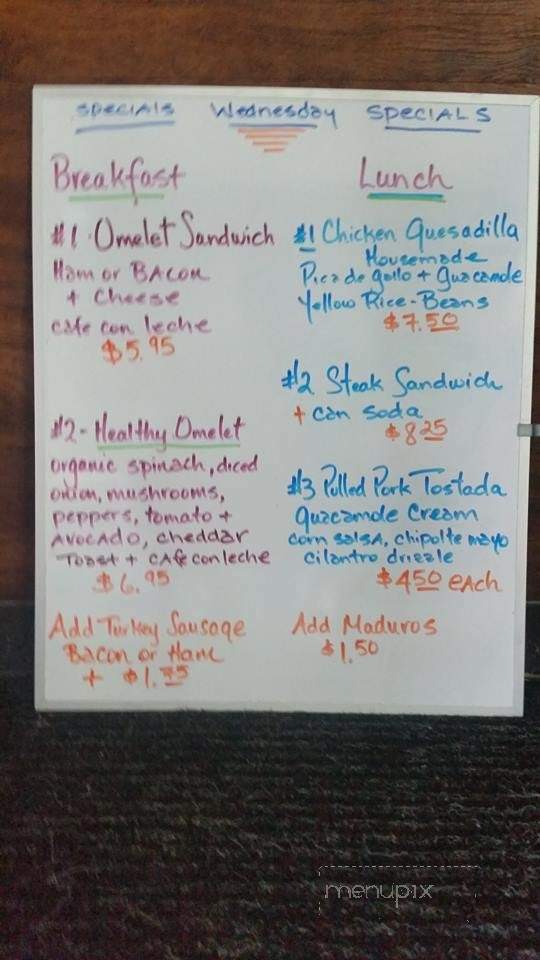 SPECIALS Wednesday SPECIALS
Breakfast
#1 Omelet Sandwich
Ham or BACON
+ Cheese
cafe con leche
$5.95
#2 - Healthy Omelet
organic spinach, diced
onion, mushrooms,
peppers, tomato +
AVOCADO, cheddar
Toast + CAFe con leche
$6.95
Add Turkey Sausage
Bacon or Ham
+ $1.75
Lunch
#1 Chicken Quesadilla
Housemade
Pica de gallo + Guacamole
Yellow Rice-Beans
$7.50
#2 Steak Sandwich
+ can soda
$8.25
#3 Pulled Pork Tostada
guacamole Cream
corn SALSA, chipolte mayo
cilantro drizzle
$4.50 eACH
Add Maduros
$1.50
menupix